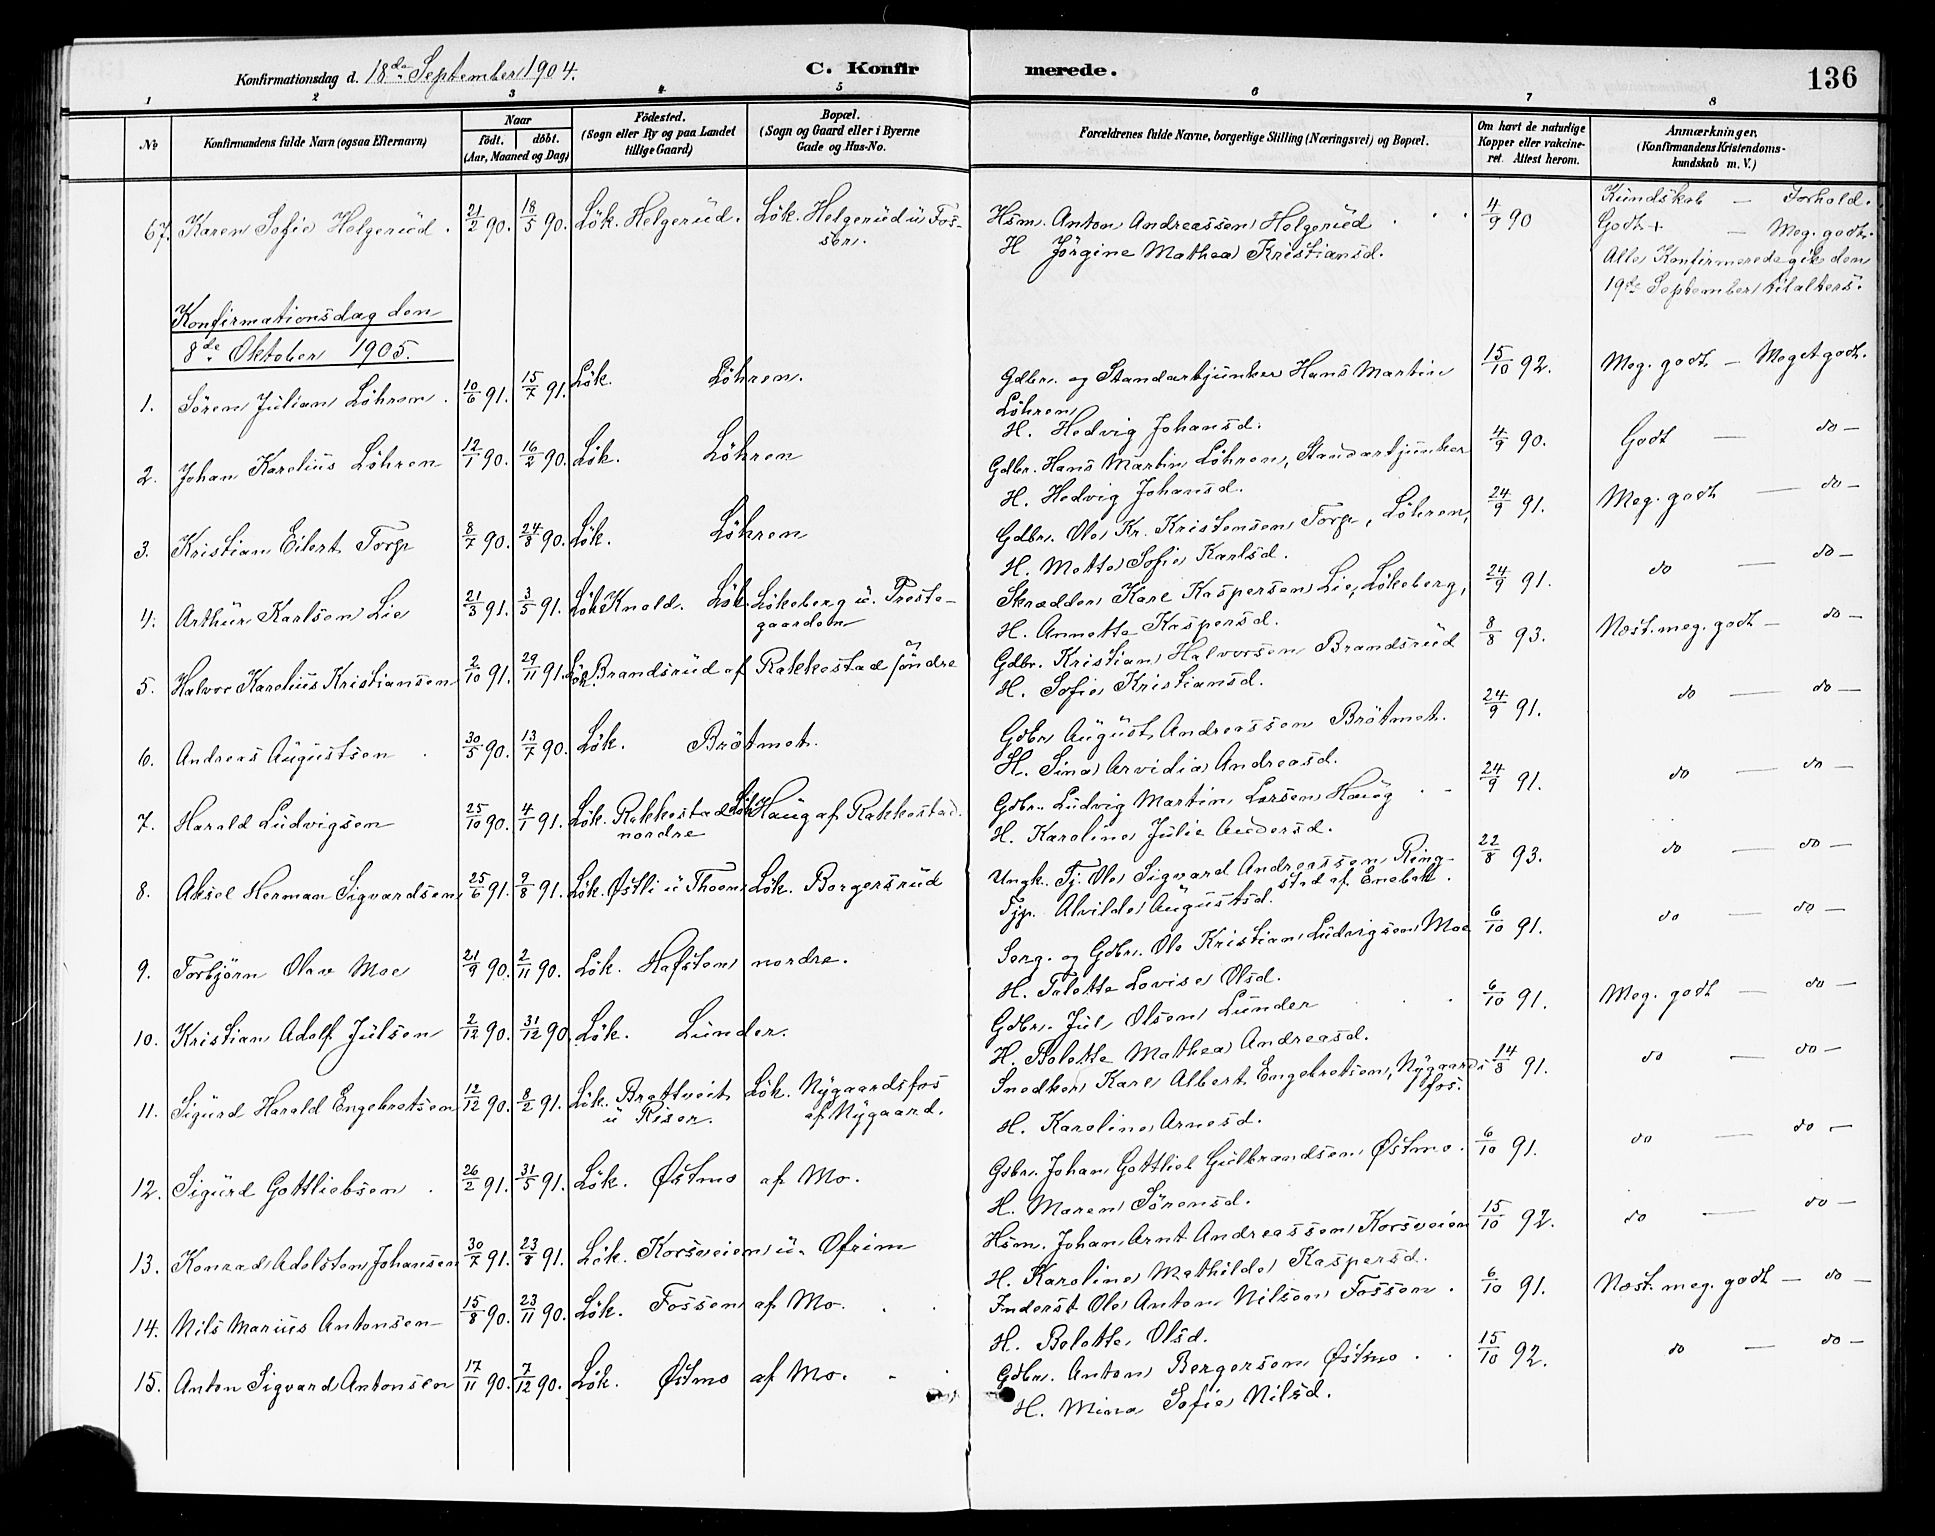 Konfirmationsdag d. 18de September 1904.
C. Konfirmerede.
136
1 2 3 4 5 6 7 8
No
Konfirmandens fulde Navn (ogsaa Efternavn)
Naar
födt. döbt.
(Aar, Maaned og Dag)
Födested.
(Sogn eller By og paa Landet
tillige Gaard)
Bopæl.
(Sogn og Gaard eller i Byerne
Gade og Hus-No.
Forældrenes fulde Navne, borgerlige Stilling (Næringsvei) og Bopæl.
Om havt de naturlige
Kopper eller vakcine-
ret. Attest herom.
Anmærkninger.
(Konfirmandens Kristendoms-
kundskab m. V.)
Kundskab — Forhold.
67. Karen Sofie Helgerüd. 21/2 90. 18/5 90. Lök. Helgerüd. Lök. Helgerüd u Fos- Hsm. Anton Andreassen Helgerüd 4/9 90 Godt + — Meg. godt.
sen. H Jörgine Mathea Kristiansd. Alle Konfirmerede gik den
19de September til alters.
Konfirmationsdag den
8de Oktober 1905.
1. Sören Julian Löhren. 10/6 91. 15/7 91. Lök. Löhren. Gdbr. og Standartjunker Hans Martin 15/10 92. Meg. godt — Meget godt.
Löhren
H. Hedvig Johansd.
2. Johan Karelius Löhren 12/1 90. 16/2 90. Lök. Löhren Gdbr. Hans Martin Löhren, Standartjunker 4/9 90. Godt — do —
H. Hedvig Johansd.
3. Kristian Eilert Torp 8/7 90. 24/8 90. Lök. Löhren Gdbr. Ole Kr. Kristensen Torp, Löhren, 24/9 91. Meg. godt — do —
H. Mette Sofie Karlsd.
4. Arthür Karlsen Lie 21/3 91. 3/5 91. Lök Knold. Lök. Lökeberg ü. Preste- Skrædder Karl Kaspersen Lie, Lökeberg, 24/9 91. do — do —
gaarden H. Annette Kaspersd.
5. Halvor Karelius Kristiansen 2/10 91. 29/11 91. Lök. Brandsrüd af Rakkestad söndre Gdbr. Kristian Halvorsen Brandsrüd 8/8 93. Næst. meg. godt — do —
H. Sofie Kristiansd.
6. Andreas Augustsen. 30/5 90. 13/7 90. Lök. Brötmet. Gdbr August Andreassen Brötmet. 24/9 91. do — do —
H. Sina Arvidia Andreasd.
7. Harald Ludvigsen 25/10 90. 4/1 91. Lök. Rakkestad Lök Haug af Rakkestad. Gdbr. Ludvig Martin Larsen Haug 24/9 91. do — do —
nordre H. Karoline Julie Andersd.
8. Aksel Herman Sigvardsen 25/6 91. 9/8 91. Lök. Østli ü Thoen Lök. Borgersrüd Ungk. Tj. Ole Sigvard Andreassen Ring- 22/8 93. do — do —
stad af Enebak.
Tjp. Alvilde Augustsd.
9. Torbjörn Olav Moe 21/9 90. 2/11 90. Lök. Hafsten nordre. Serg. og Gdbr. Ole Kristian Ludvigsen Moe 6/10 91. do — do —
H. Talette Lovise Olsd.
10. Kristian Adolf Julsen 2/12 90. 31/12 90. Lök. Lunder. Gdbr. Jul Olsen Lunder 6/10 91. Meg. godt — do —
H. Bolette Mathea Andreasd.
11. Sigurd Harald Engebretsen 12/12 90. 8/2 91. Lök. Brattveit Lök. Nygaardsfos Snedker Karl Albert Engebretsen, Nygaards 14/8 91. do — do —
ü Riser. af Nygaard. fos.
H. Karoline Arnesd.
12. Sigurd Gottliebsen. 26/2 91. 31/5 91. Lök. Østmo af Mo. Gdbr. Johan Gottlieb Gulbrandsen Østmo. 6/10 91. do — do —
H. Maren Sörensd.
13. Konrad Adolsten Johansen 30/7 91. 23/8 91. Lök. Korsveien ü. Ofrim Hsm. Johan Arnt Andreassen Korsveien 15/10 92. do — do —
H. Karoline Mathilde Kaspersd.
14. Nils Marius Antonsen 15/8 90. 23/11 90. Lök. Fossen af Mo. Inderst Ole Anton Nilsen Fossen. 6/10 91. Næst. meg. godt — do —
H. Bolette Olsd.
15. Anton Sigvard Antonsen 17/11 90. 7/12 90. Lök. Østmo af Mo. Gdbr. Anton Bergersen Østmo 15/10 92. do — do —
H. Mina Sofie Nilsd.